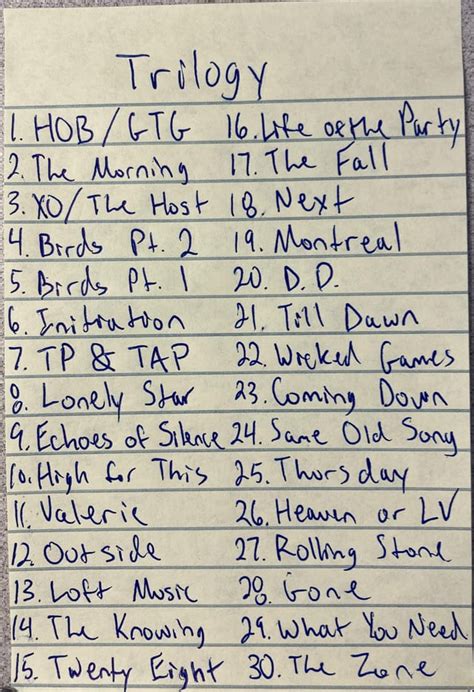 Trilogy
1. HOB/GTG
2. The Morning
3. XO/The Host
4. Birds Pt. 2
5. Birds Pt. 1
6. Initiation
7. TP & TAP
8. Lonely Star
9. Echoes of Silence
10. High for This
11. Valerie
12. Outside
13. Loft Music
14. The Knowing
15. Twenty Eight
16. Life of the Party
17. The Fall
18. Next
19. Montreal
20. D.D.
21. Till Dawn
22. Wicked Games
23. Coming Down
24. Same Old Song
25. Thursday
26. Heaven or LV
27. Rolling Stone
28. Gone
29. What You Need
30. The Zone